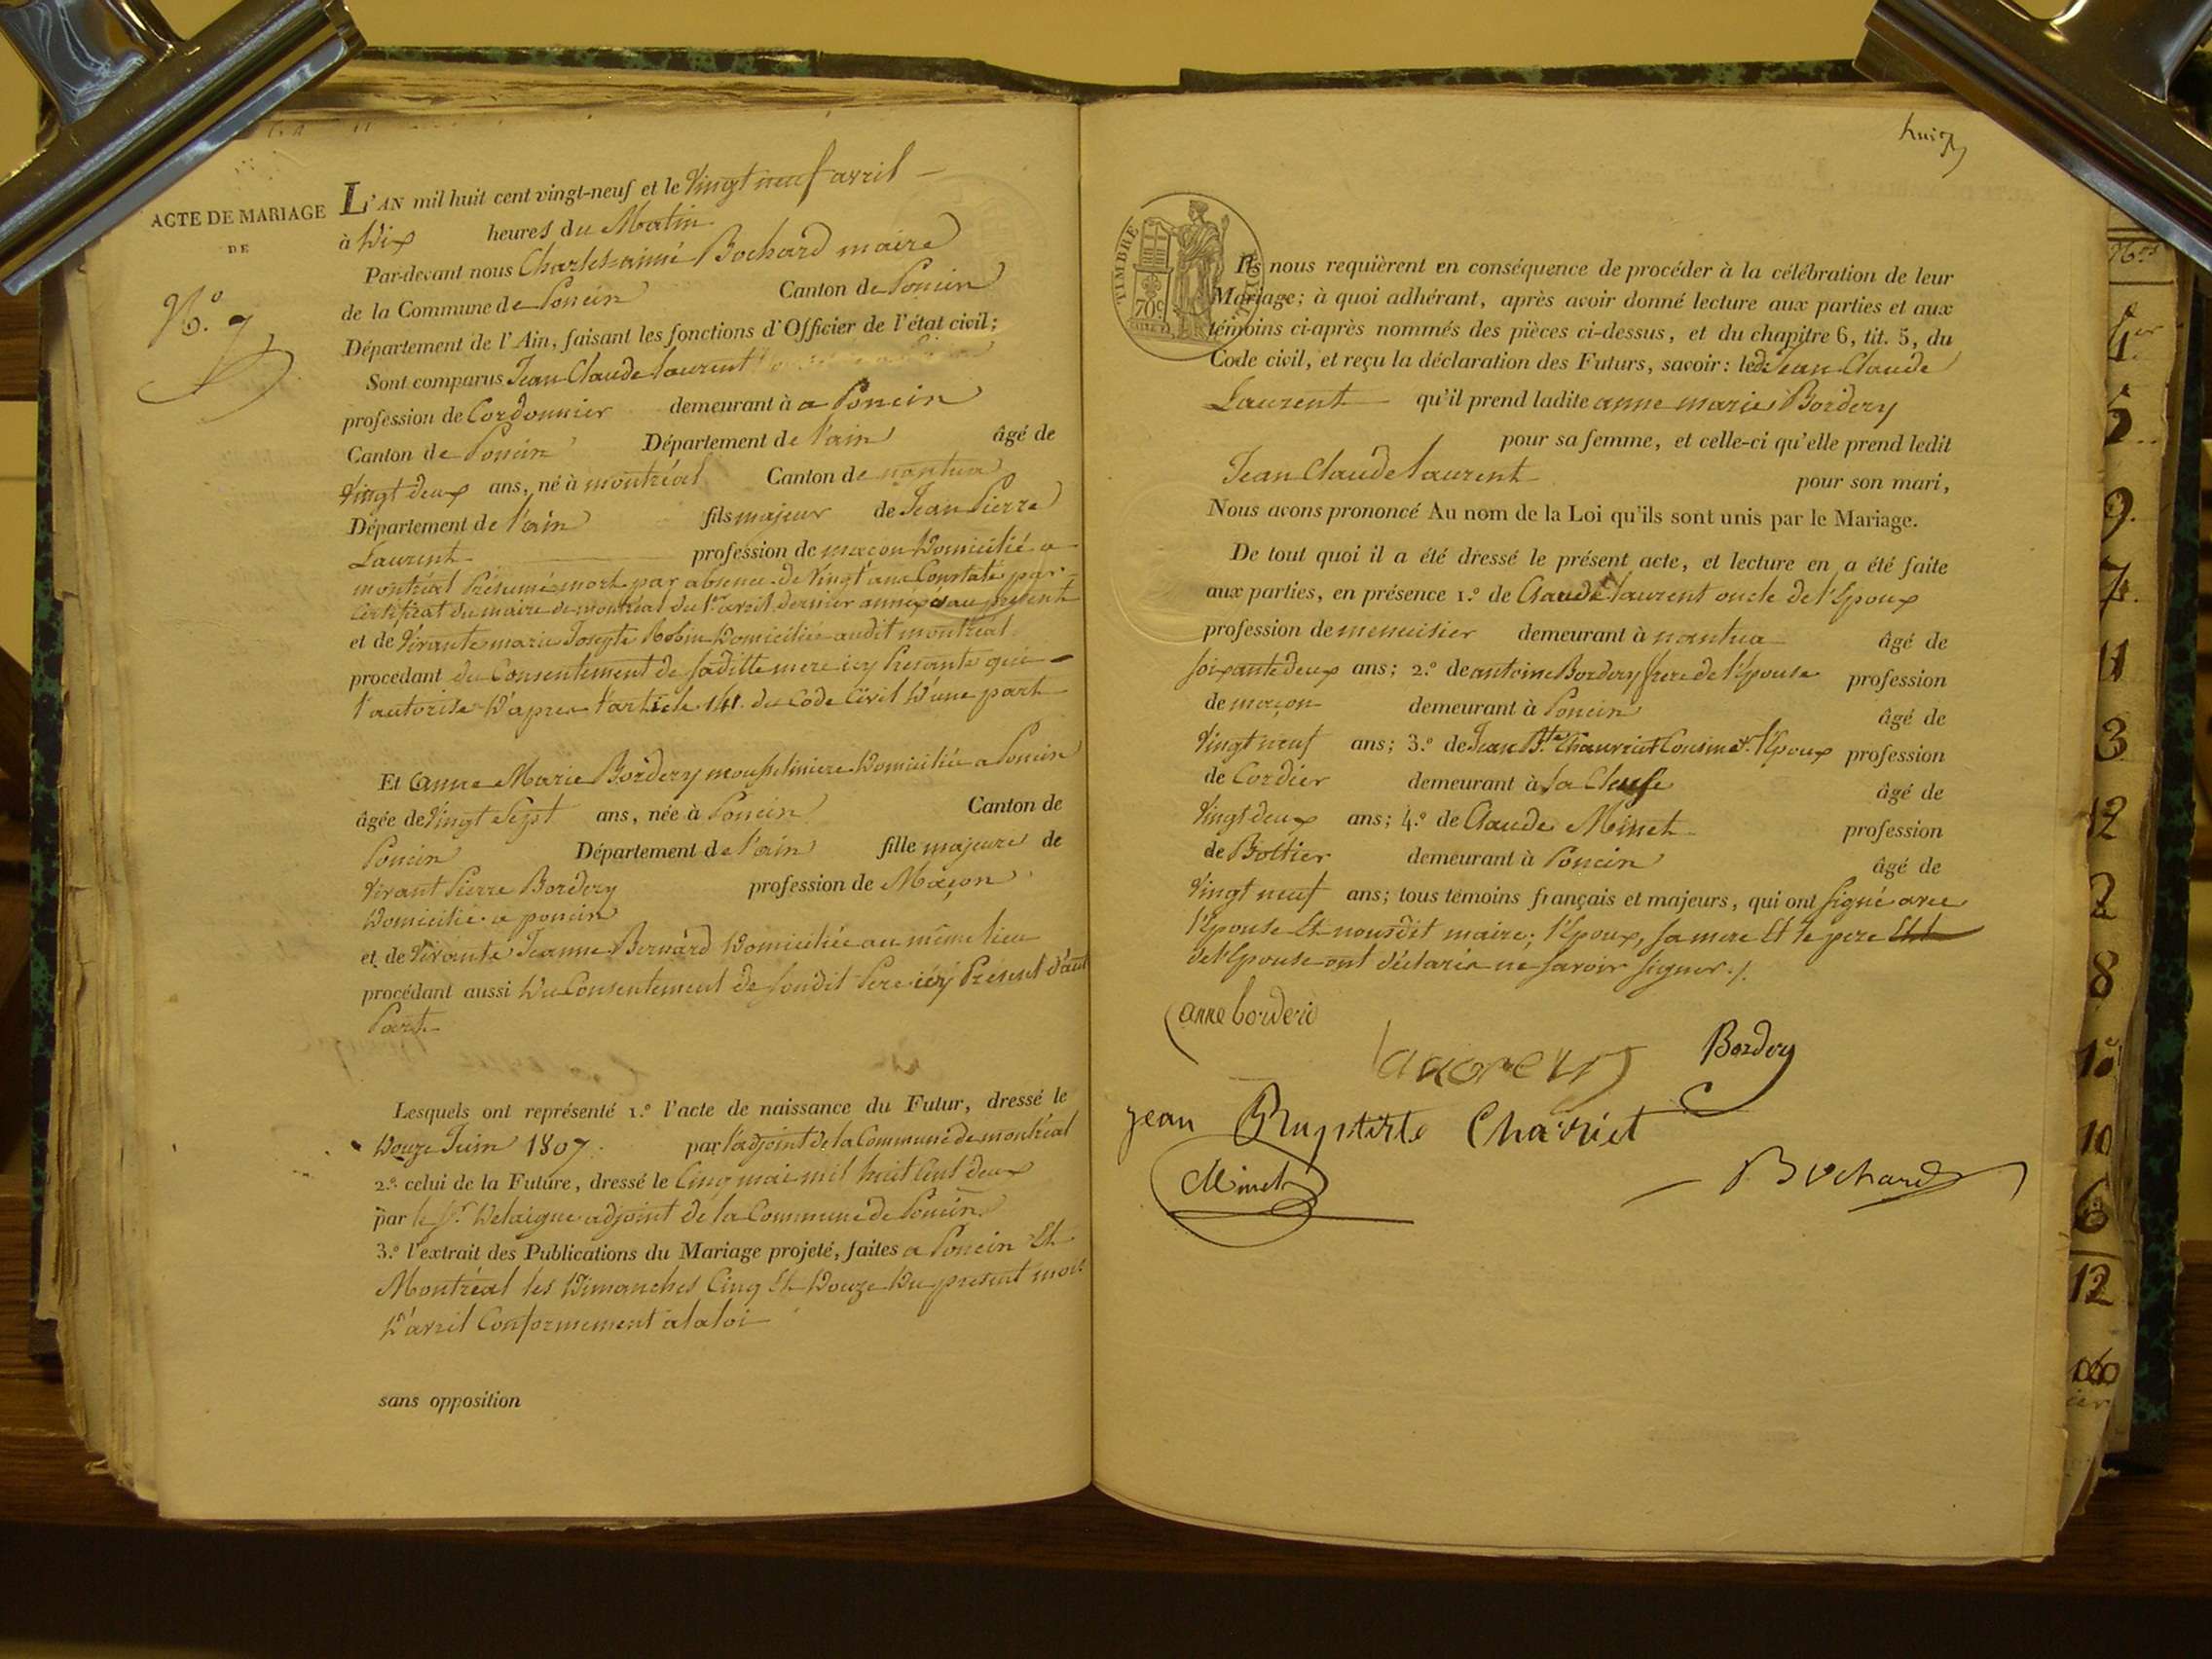 ACTE DE MARIAGE
DE
N.º 7
L'AN mil huit cent vingt-neuf et le Vingt neuf avril
à Dix heures du Matin
Par-devant nous Charles aimé Bochard maire
de la Commune de Poncin Canton de Poncin
Département de l'Ain, faisant les fonctions d'Officier de l'état civil;
Sont comparus Jean Claude Laurent
profession de Cordonnier demeurant à a Poncin
Canton de Poncin Département de l'ain âgé de
Vingt deux ans, né à montréal Canton de nantua
Département de l'ain fils majeur de Jean Pierre
Laurent profession de maçon Domicilié a
montréal Présumé mort par absence de Vingt ans Constaté par
Certificat du maire de montréal du 1er avril dernier année au présent
et de Vivante marie Josepte Robin Domiciliée audit montréal
procedant du Consentement de saditte mere icy Présente qui
l'autorise D'apres l'article 141 du Code Civil D'une part
Et anne Marie Bordery mousseliniere Domiciliée a Poncin
âgée de Vingt Sept ans, née à Poncin Canton de
Poncin Département de l'ain fille majeure de
Vivant Pierre Bordery profession de Maçon
Domicilié a poncin
et de Vivante Jeanne Bernard Domiciliée au même lieu
procédant aussi Du Consentement de sondit Pere icy Présent d'aut
Part
Lesquels ont représenté 1.º l'acte de naissance du Futur, dressé le
Douze Juin 1807 par l'adjoint de la Commune de montréal
2.º celui de la Future, dressé le Cinq mai mil huit Cent deux
par le Sr. Delaigue adjoint de la Commune de Poncin
3.º l'extrait des Publications du Mariage projeté, faites a Poncin Et
Montréal les Dimanches Cinq Et Douze Du présent mois
D'avril Conformement à la loi
sans opposition
huit
TIMBRE
70c
Ils nous requièrent en conséquence de procéder à la célébration de leur
Mariage; à quoi adhérant, après avoir donné lecture aux parties et aux
témoins ci-après nommés des pièces ci-dessus, et du chapitre 6, tit. 5, du
Code civil, et reçu la déclaration des Futurs, savoir: ledit Jean Claude
Laurent qu'il prend ladite anne marie Bordery
pour sa femme, et celle-ci qu'elle prend ledit
Jean Claude Laurent pour son mari,
Nous avons prononcé Au nom de la Loi qu'ils sont unis par le Mariage.
De tout quoi il a été dressé le présent acte, et lecture en a été faite
aux parties, en présence 1.º de Claude Laurent oncle de l'Epoux
profession de menuisier demeurant à nantua âgé de
soixante deux ans; 2.º de antoine Bordery frere de l'Epouse profession
de maçon demeurant à Poncin âgé de
Vingt neuf ans; 3.º de Jean Bte. Chavriet Cousin de l'Epoux profession
de Cordier demeurant à la Cluse âgé de
Vingt deux ans; 4.º de Claude Minet profession
de Bottier demeurant à Poncin âgé de
Vingt neuf ans; tous témoins français et majeurs, qui ont signé avec
l'Epouse Et nousdit maire; l'Epoux, sa mere Et le pere
de l'Epouse ont déclarés ne savoir signer ./.
anne borderi
Bordery
jean Baptiste Chavriet
Minet
Bochard
Nos
1er
5
9
7
11
3
12
2
8
10
10
6
12